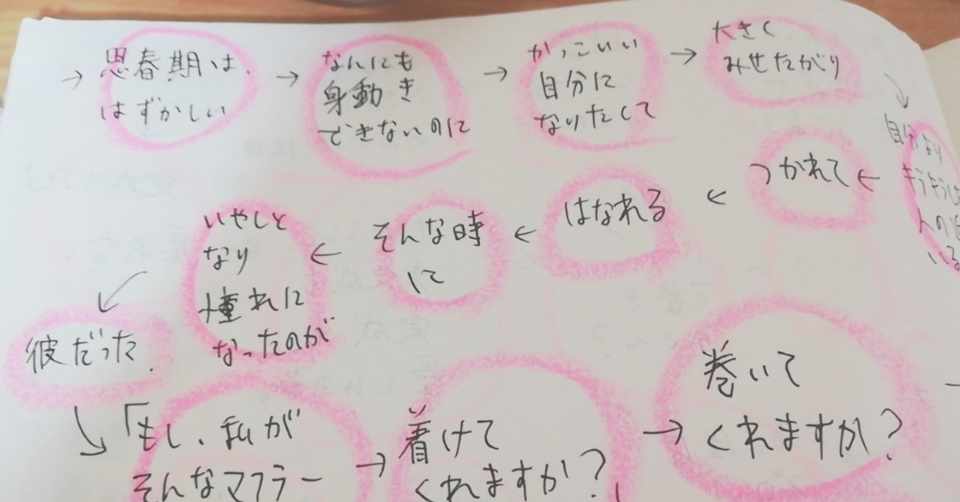 → 思春期は、
はずかしい
→ なんにも
身動き
できないのに
→ かっこいい
自分に
なりたくて
→ 大きく
みせたがり
↘
自分より
キラキラした
人の
いる
← つかれて
← はなれる
← そんな時
に
← いやしと
なり
憧れに
なったのが
↙
彼だった.
↘ 「もし、私が
そんなマフラー
→ 着けて
くれますか?
→ 巻いて
くれますか?
→